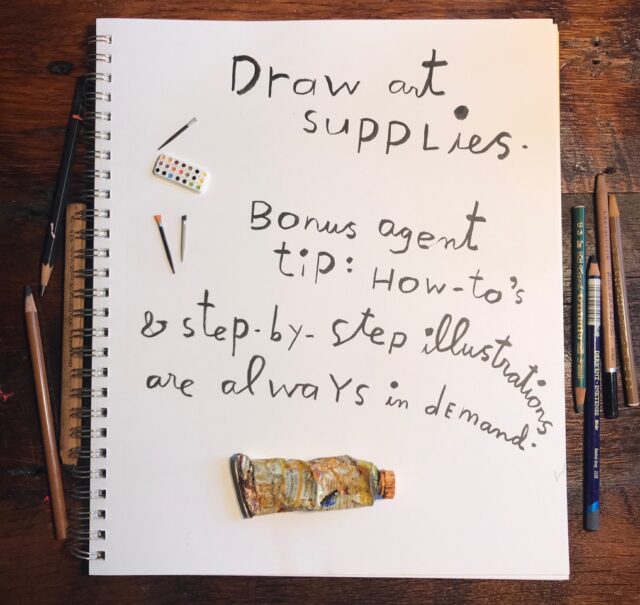 Draw art
supplies.
Bonus agent
tip: How-to's
& step-by-step illustrations
are always in demand.
DERWENT · INKTENSE